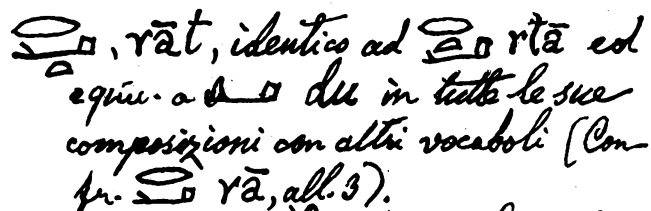 𓂋𓂝𓏏, rāt, identico ad 𓂋𓏏𓂝 rtā ed
equiv. a 𓂞 du in tutte le sue
composizioni con altri vocaboli (Con-
fr. 𓂋𓂝 rā, all. 3).